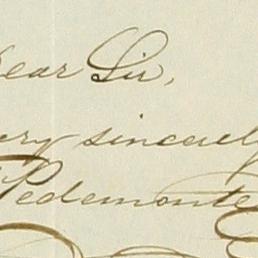 Dear Sir,
very sincerely
Pedemonte